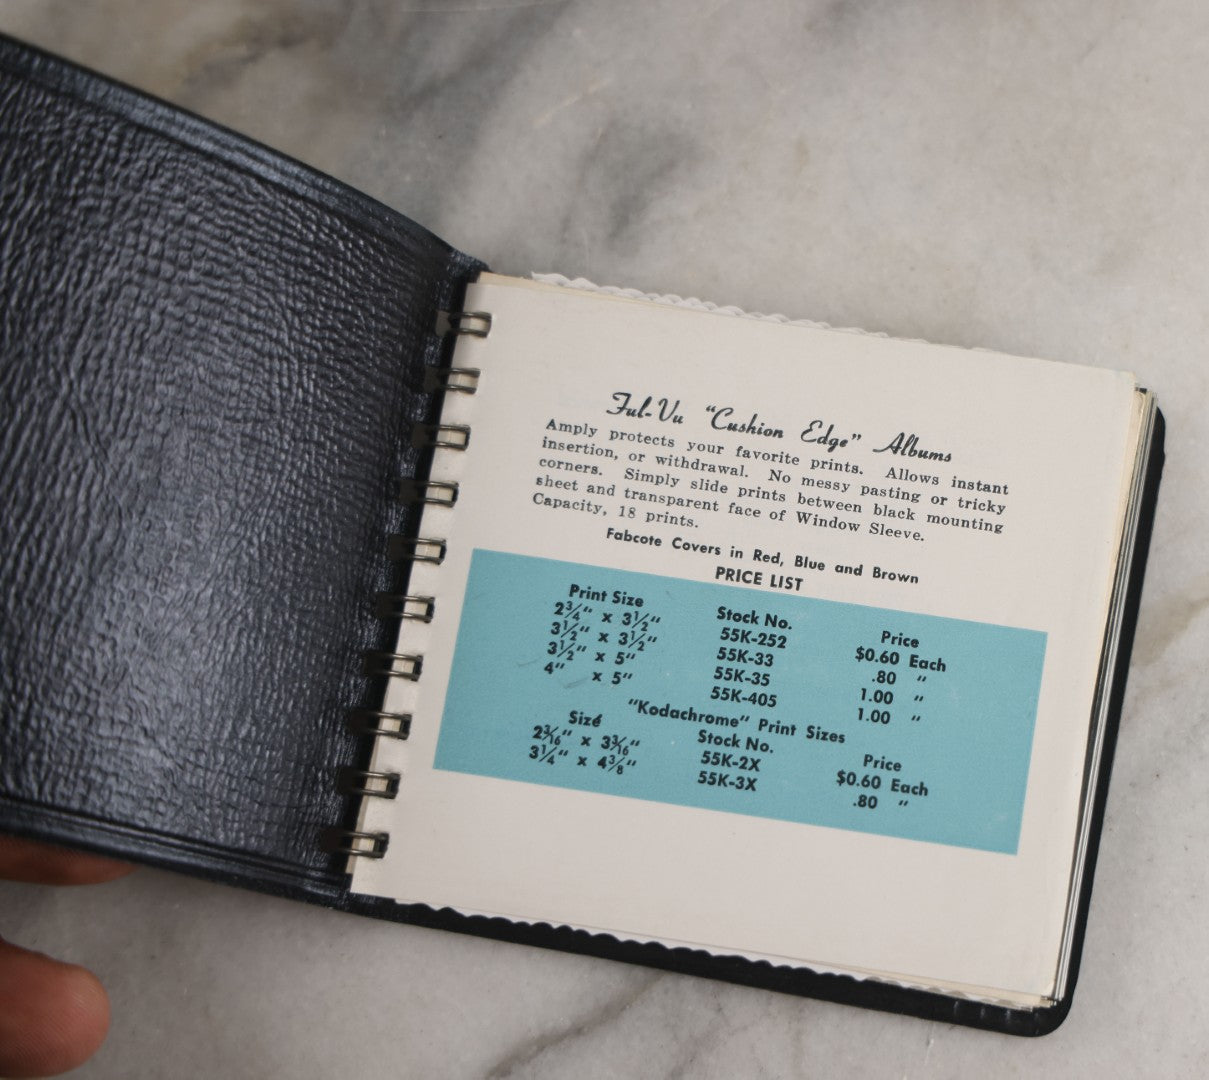 Ful-Vu "Cushion Edge" Albums
Amply protects your favorite prints. Allows instant
insertion, or withdrawal. No messy pasting or tricky
corners. Simply slide prints between black mounting
sheet and transparent face of Window Sleeve.
Capacity, 18 prints.
Fabcote Covers in Red, Blue and Brown
PRICE LIST
Print Size Stock No. Price
2¾" x 3½" 55K-252 $0.60 Each
3½" x 3½" 55K-33 .80 "
3½" x 5" 55K-35 1.00 "
4" x 5" 55K-405 1.00 "
"Kodachrome" Print Sizes
Size Stock No. Price
2³⁄₁₆" x 3³⁄₁₆" 55K-2X $0.60 Each
3¼" x 4⅜" 55K-3X .80 "